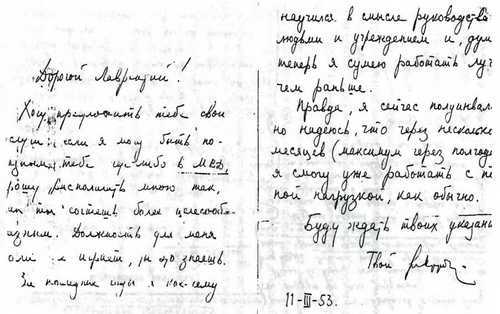 Дорогой Лаврентий!
Хочу предложить тебе свои
если я могу быть по-
тебе где-либо в МВД,
прошу располагать мною так,
как ты сочтешь более целесооб-
разным. Должность для меня
роли не играет, ты это знаешь.
За последние годы я кое-чему
научился в смысле руководства
людьми и учреждением и, дум
теперь я сумею работать луч
чем раньше.
Правда, я сейчас полуинвал
но надеюсь, что через несколько
месяцев (максимум через полгода
я смогу уже работать с по
ной нагрузкой, как обычно.
Буду ждать твоих указан
Твой
11-III-53.